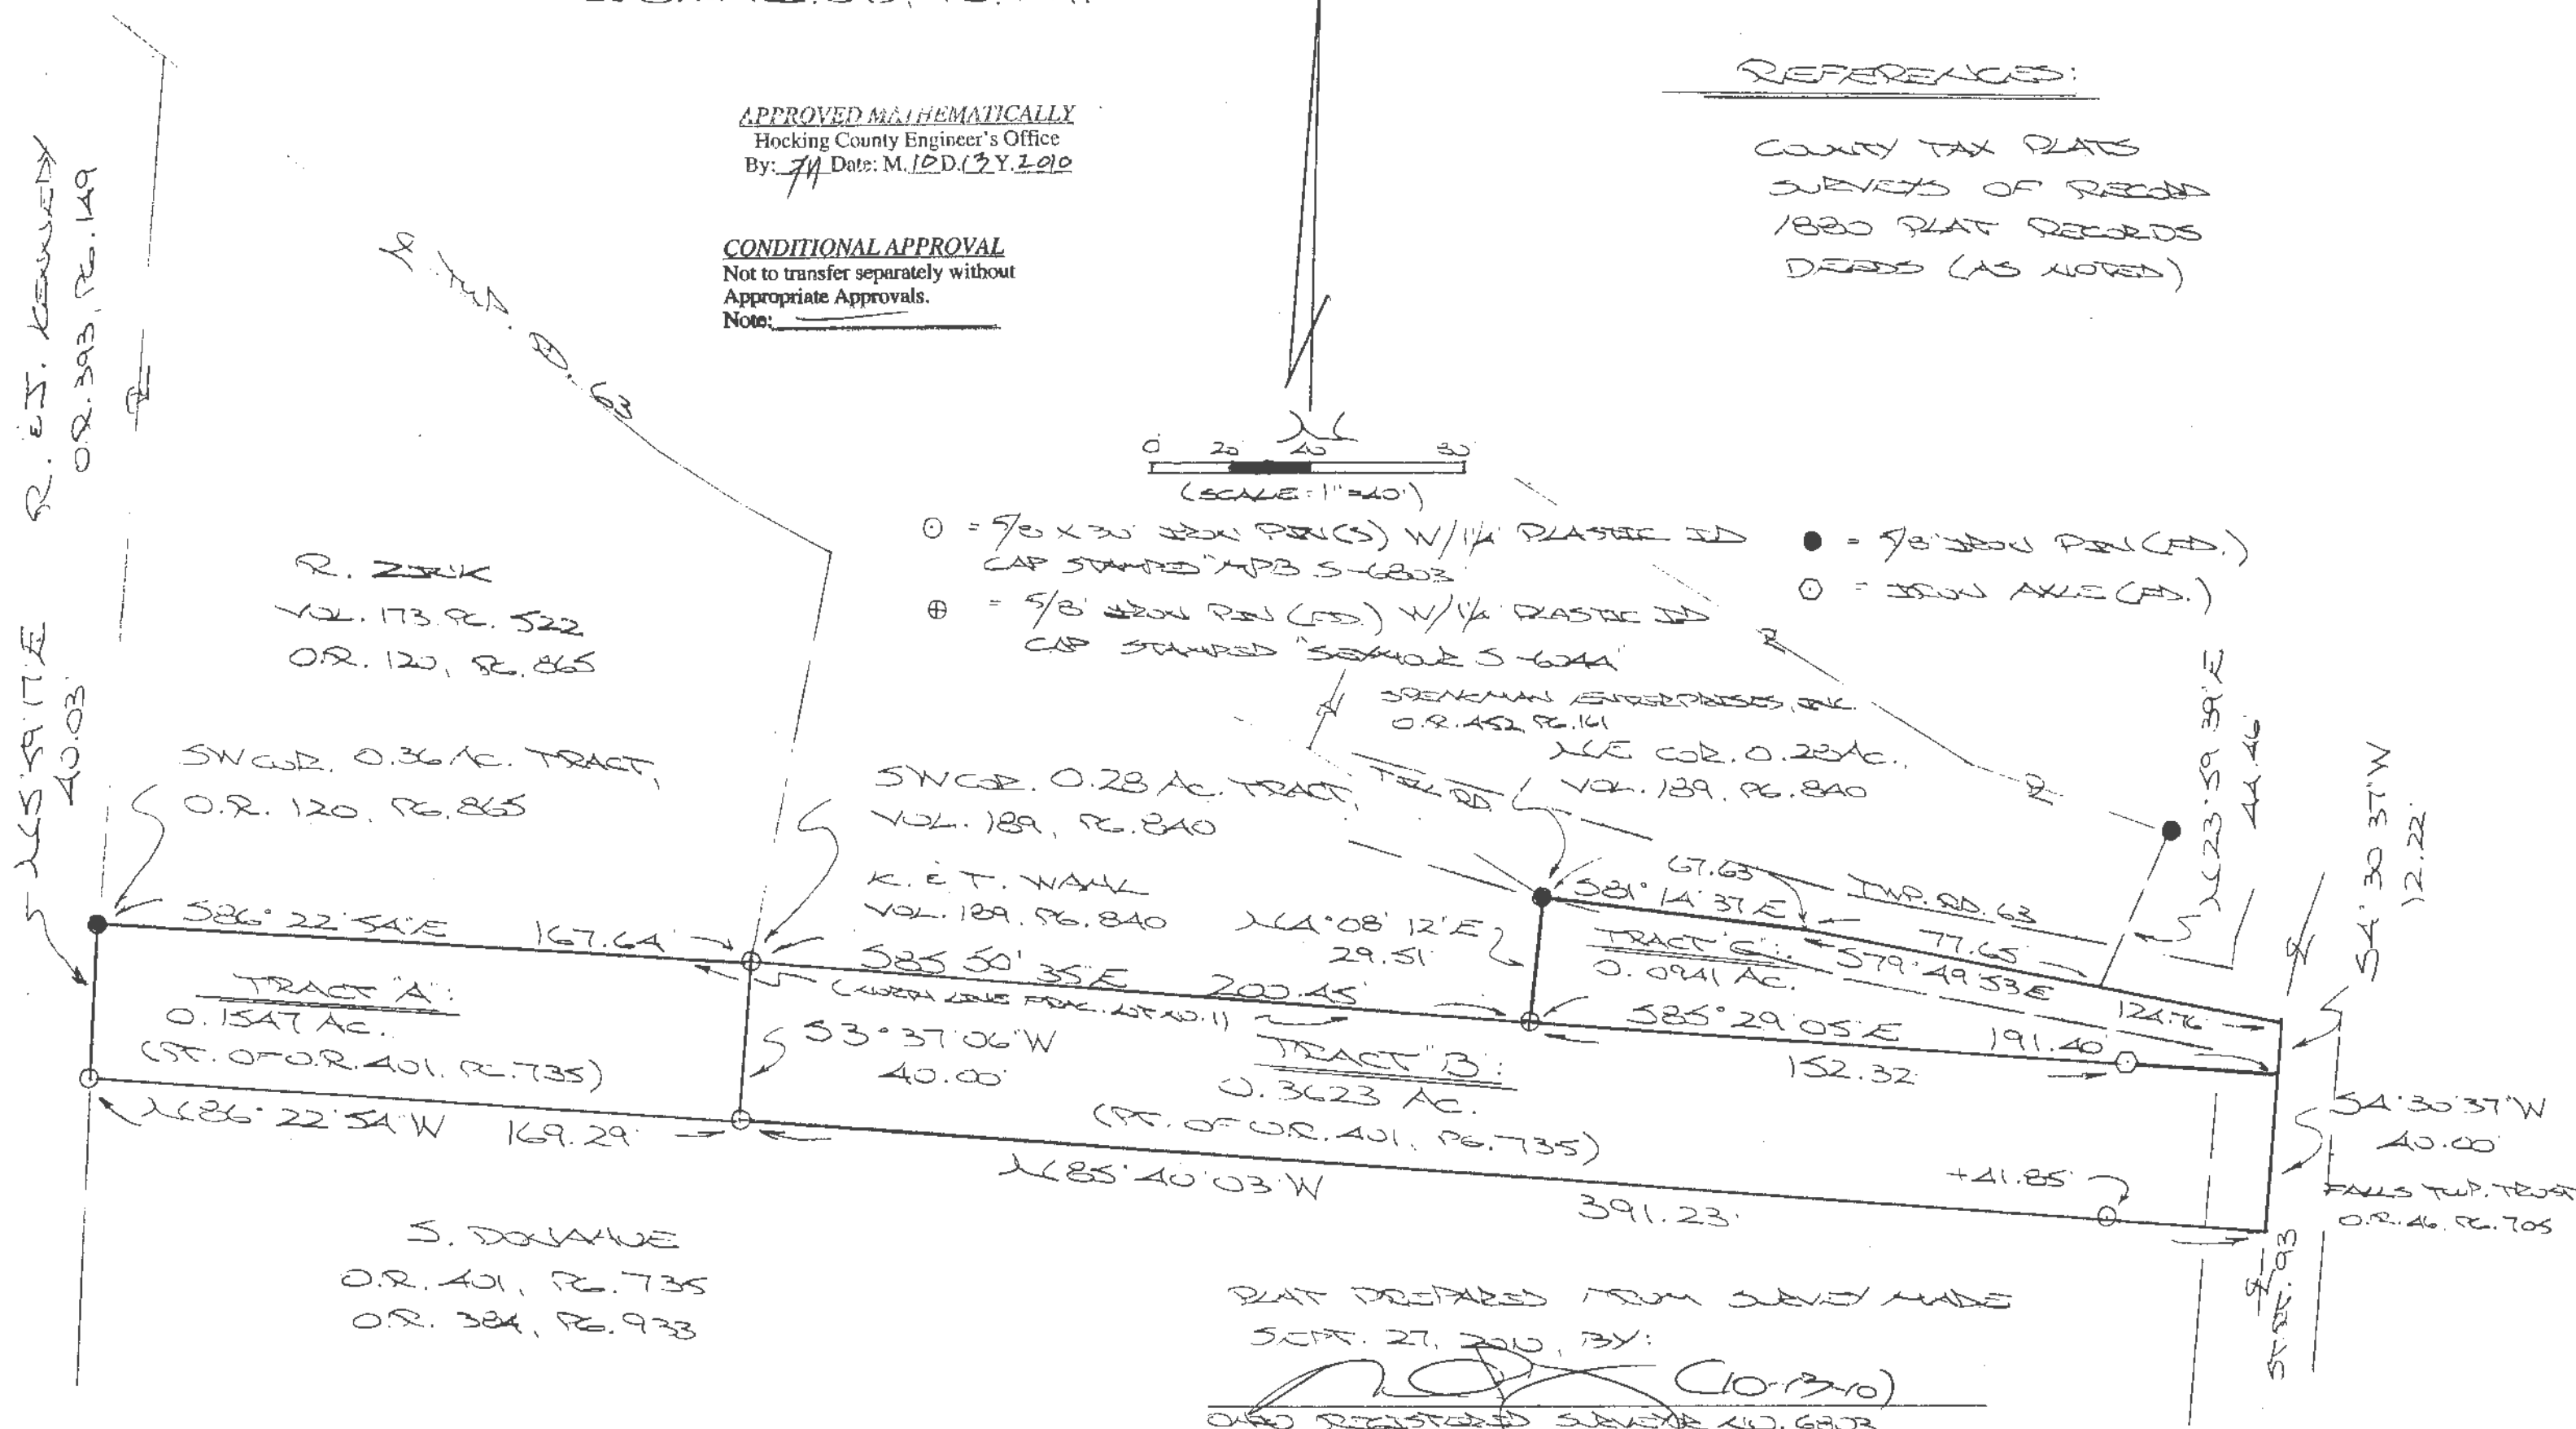 REFERENCES:
COUNTY TAX PLATS
SURVEYS OF RECORD
1880 PLAT RECORDS
DEEDS (AS NOTED)
APPROVED MATHEMATICALLY
Hocking County Engineer's Office
By: Date: M. 10 D. 13 Y. 2010
CONDITIONAL APPROVAL
Not to transfer separately without
Appropriate Approvals.
Note:
R. & J. KENNEDY
O.R. 393, PG. 149
TWP. RD. 63
0 20 40 80
(SCALE: 1"=40')
= 5/8 X 30" IRON PIN(S) W/ 1 1/4" PLASTIC ID
CAP STAMPED "MPB S-6803"
= 5/8" IRON PIN (FD.) W/ 1 1/4" PLASTIC ID
CAP STAMPED "SEYMOUR S-6044"
= 5/8" IRON PIN (FD.)
= IRON AXLE (FD.)
R. ZIRK
VOL. 173 PG. 522
O.R. 120, PG. 865
N5°59'17"E
40.03'
SW COR. 0.36 AC. TRACT,
O.R. 120, PG. 865
SW COR. 0.28 AC. TRACT,
VOL. 189, PG. 840
K. & T. WAHL
VOL. 189, PG. 840
ENTERPRISES, INC.
O.R. 452, PG. 161
NE COR. 0.28 AC.,
VOL. 189, PG. 840
RD.
N23°59'39"E
44.46'
S4°30'37"W
12.22'
S86°22'54"E 167.64'
S85°50'35"E 200.45'
(NORTH LINE FRAC. LOT NO. 1)
N4°08'12"E
29.51'
67.63'
S81°14'37"E
TWP. RD. 63
77.65'
S79°49'53"E
124.76'
TRACT "C":
0.0941 AC.
S85°29'05"E 191.40'
152.32'
TRACT "A":
0.1547 AC.
(PT. OF O.R. 401, PG. 735)
S3°37'06"W
40.00'
TRACT "B":
0.3623 AC.
(PT. OF O.R. 401, PG. 735)
N86°22'54"W 169.29'
N85°40'03"W
391.23'
+41.85'
S4°30'37"W
40.00'
FALLS TWP. TRUST
O.R. 46, PG. 705
ST. RT. 93
S. DONAHUE
O.R. 401, PG. 735
O.R. 384, PG. 933
PLAT PREPARED FROM SURVEY MADE
SEPT. 27, 2010, BY:
(10-13-10)
OHIO REGISTERED SURVEYOR NO. 6803